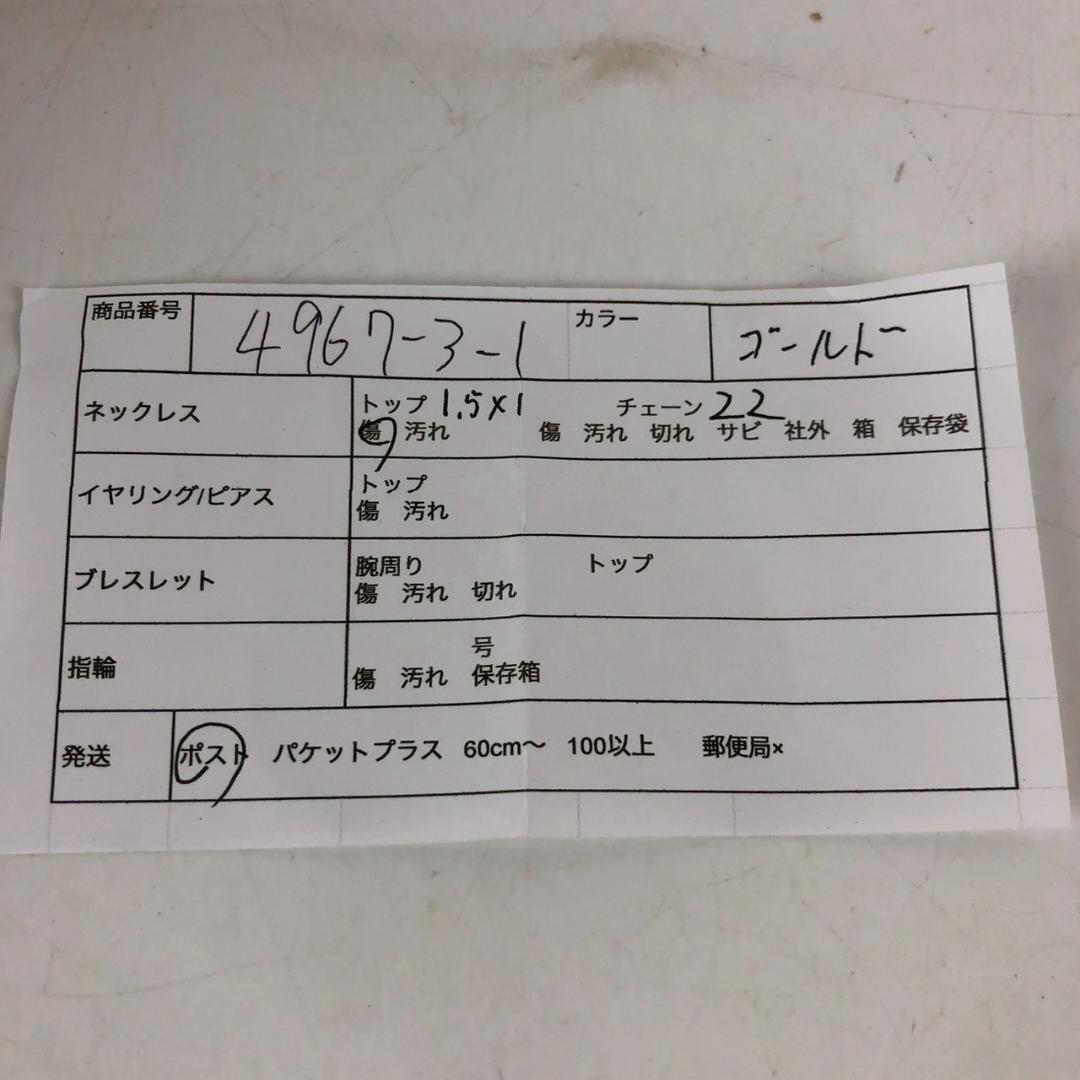 商品番号 4967-3-1 カラー ゴールド
ネックレス トップ 1.5×1 チェーン 22
傷 汚れ 傷 汚れ 切れ サビ 社外 箱 保存袋
イヤリング/ピアス トップ
傷 汚れ
ブレスレット 腕周り トップ
傷 汚れ 切れ
指輪 号
傷 汚れ 保存箱
発送 ポスト パケットプラス 60cm〜 100以上 郵便局×